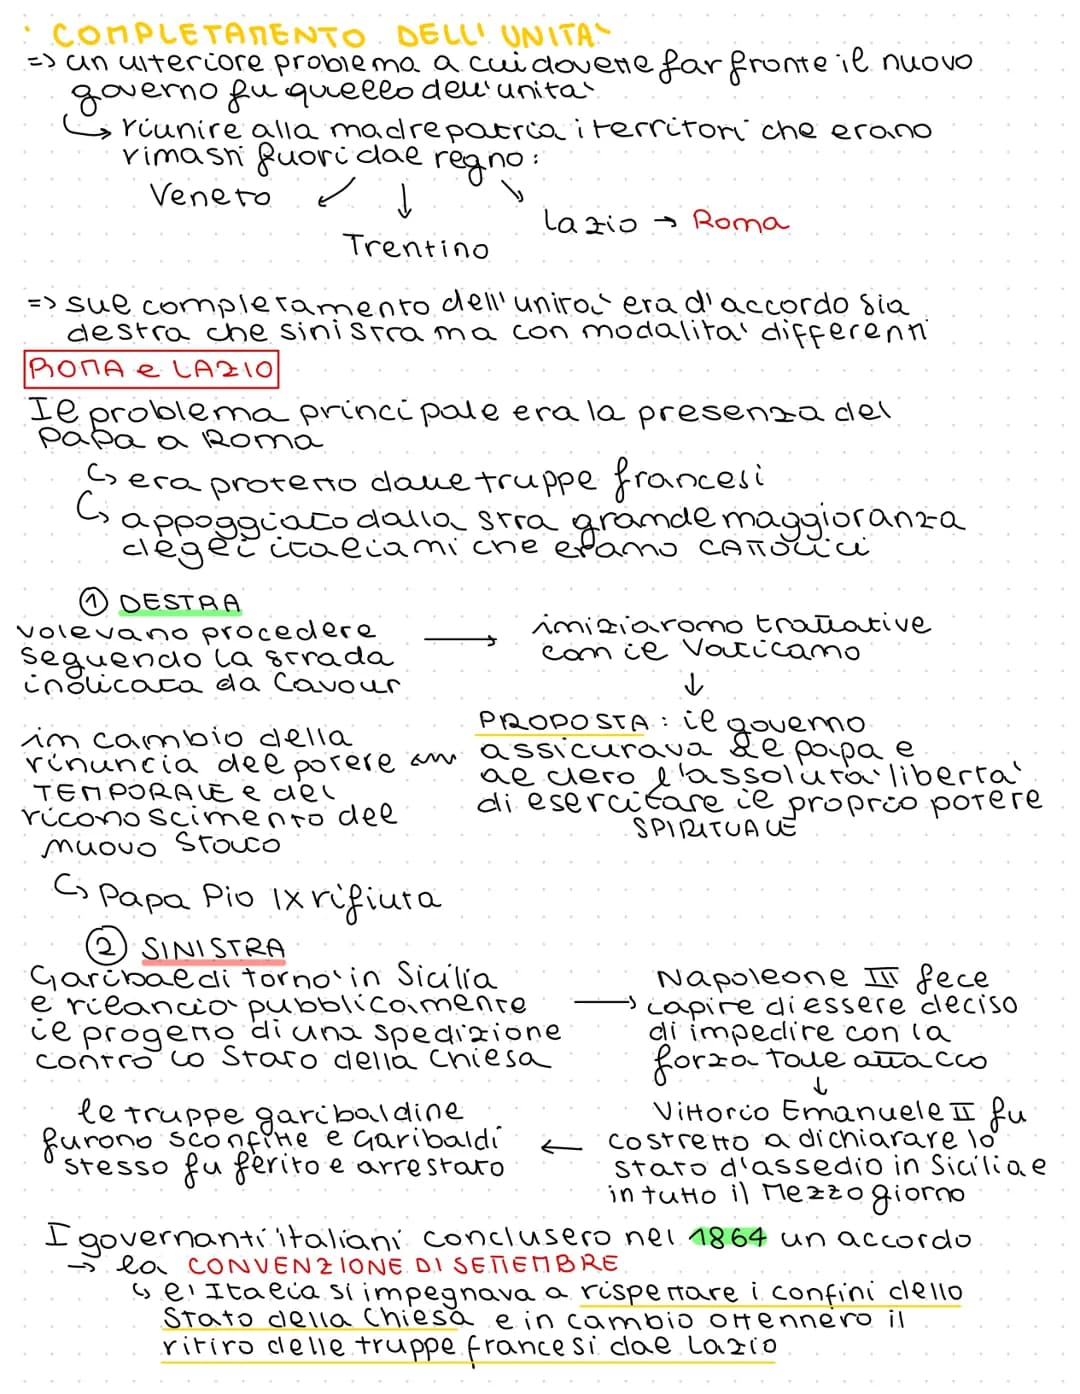 · COMPLETAMENTO DELL' UNITA'
=> un ulteriore problema a cui dovette far fronte il nuovo
governo fu quello dell'unita'
↳ riunire alla madrepatria i territori che erano
rimasti fuori dal regno:
Veneto ↙ ↓ ↘
Lazio → Roma
Trentino
=> sul completamento dell'unita' era d'accordo sia
destra che sinistra ma con modalita' differenti
ROMA e LAZIO
Il problema principale era la presenza del
Papa a Roma
↳ era protetto dalle truppe francesi
↳ appoggiato dalla stra grande maggioranza
degli italiani che erano CATTOLICI
① DESTRA
volevano procedere
seguendo la strada
indicata da Cavour
→ iniziarono trattative
con il Vaticano
↓
PROPOSTA: il governo
assicurava al papa e
al clero l'assoluta liberta'
di esercitare il proprio potere
SPIRITUALE
in cambio della
rinuncia del potere
TEMPORALE e del
riconoscimento del
nuovo Stato
↳ Papa Pio IX rifiuta
② SINISTRA
Garibaldi torno' in Sicilia
e rilancio' pubblicamente
il progetto di una spedizione
contro lo Stato della Chiesa
→ Napoleone III fece
capire di essere deciso
di impedire con la
forza tale attacco
↓
Vittorio Emanuele II fu
costretto a dichiarare lo
stato d'assedio in Sicilia e
in tutto il Mezzogiorno
← le truppe garibaldine
furono sconfitte e Garibaldi
stesso fu ferito e arrestato
I governanti italiani conclusero nel 1864 un accordo
→ la CONVENZIONE DI SETTEMBRE
↳ l'Italia si impegnava a rispettare i confini dello
Stato della Chiesa e in cambio ottennero il
ritiro delle truppe francesi dal Lazio